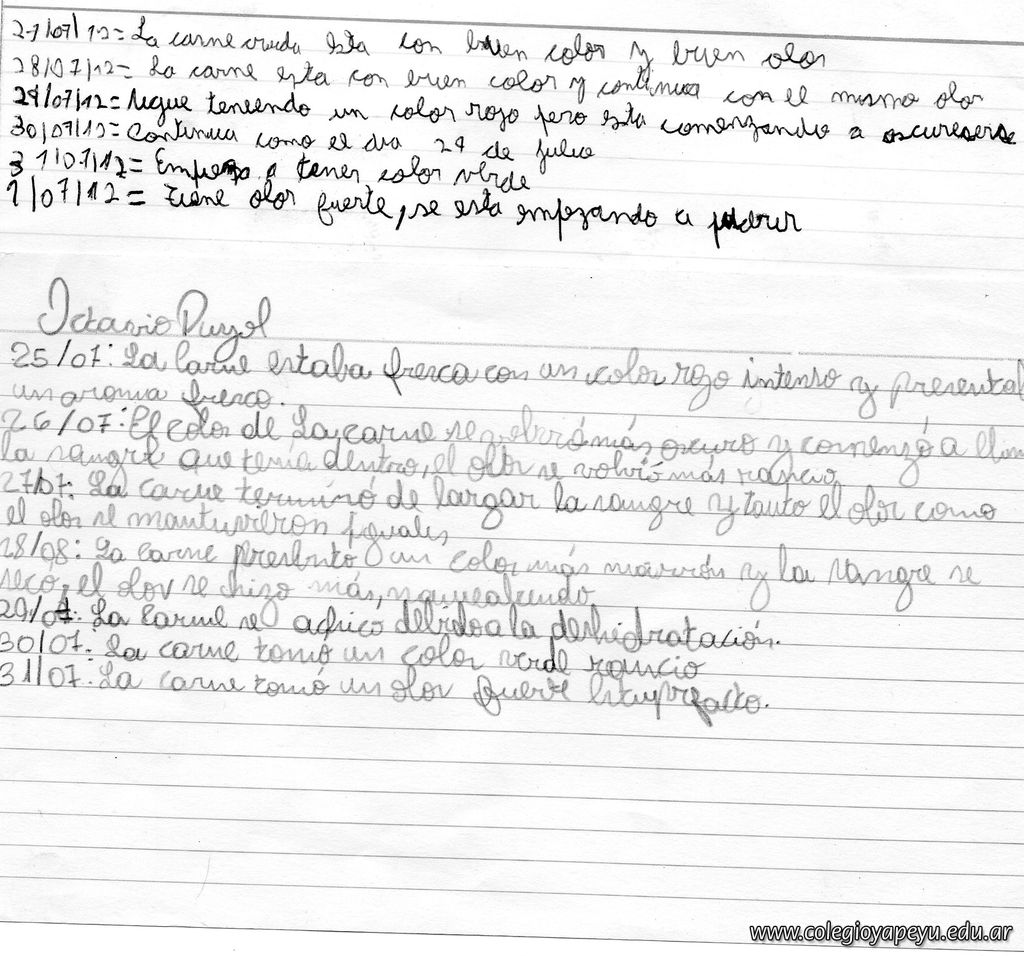 27/07/12= La carne cruda esta con buen color y buen olor
28/07/12= La carne esta con buen color y continua con el mismo olor
29/07/12= Sigue teneendo un color rojo pero esta comenzando a oscureserse
30/07/12= Continua como el dia 29 de julio
31/07/12= Empieza a tener color verde
1/07/12= Tiene olor fuerte, se esta empezando a pudrir
Octavio Puyol
25/07: La carne estaba fresca con un color rojo intenso y presentab
un aroma fresco.
26/07: El color de La carne se volvió más oscuro y comenzó a
la sangre que tenía dentro, el olor se volvió más rancio
27/07: La carne terminó de largar la sangre y tanto el olor como
el olor se mantuvieron iguales,
28/08: La carne presento un color más marrón y la sangre se
seco, el olor se hizo más,
29/07: La carne se achico debido a la deshidratación.
30/07: La carne tomó un color verde rancio
31/07: La carne tomó un olor fuerte
www.colegioyapeyu.edu.ar